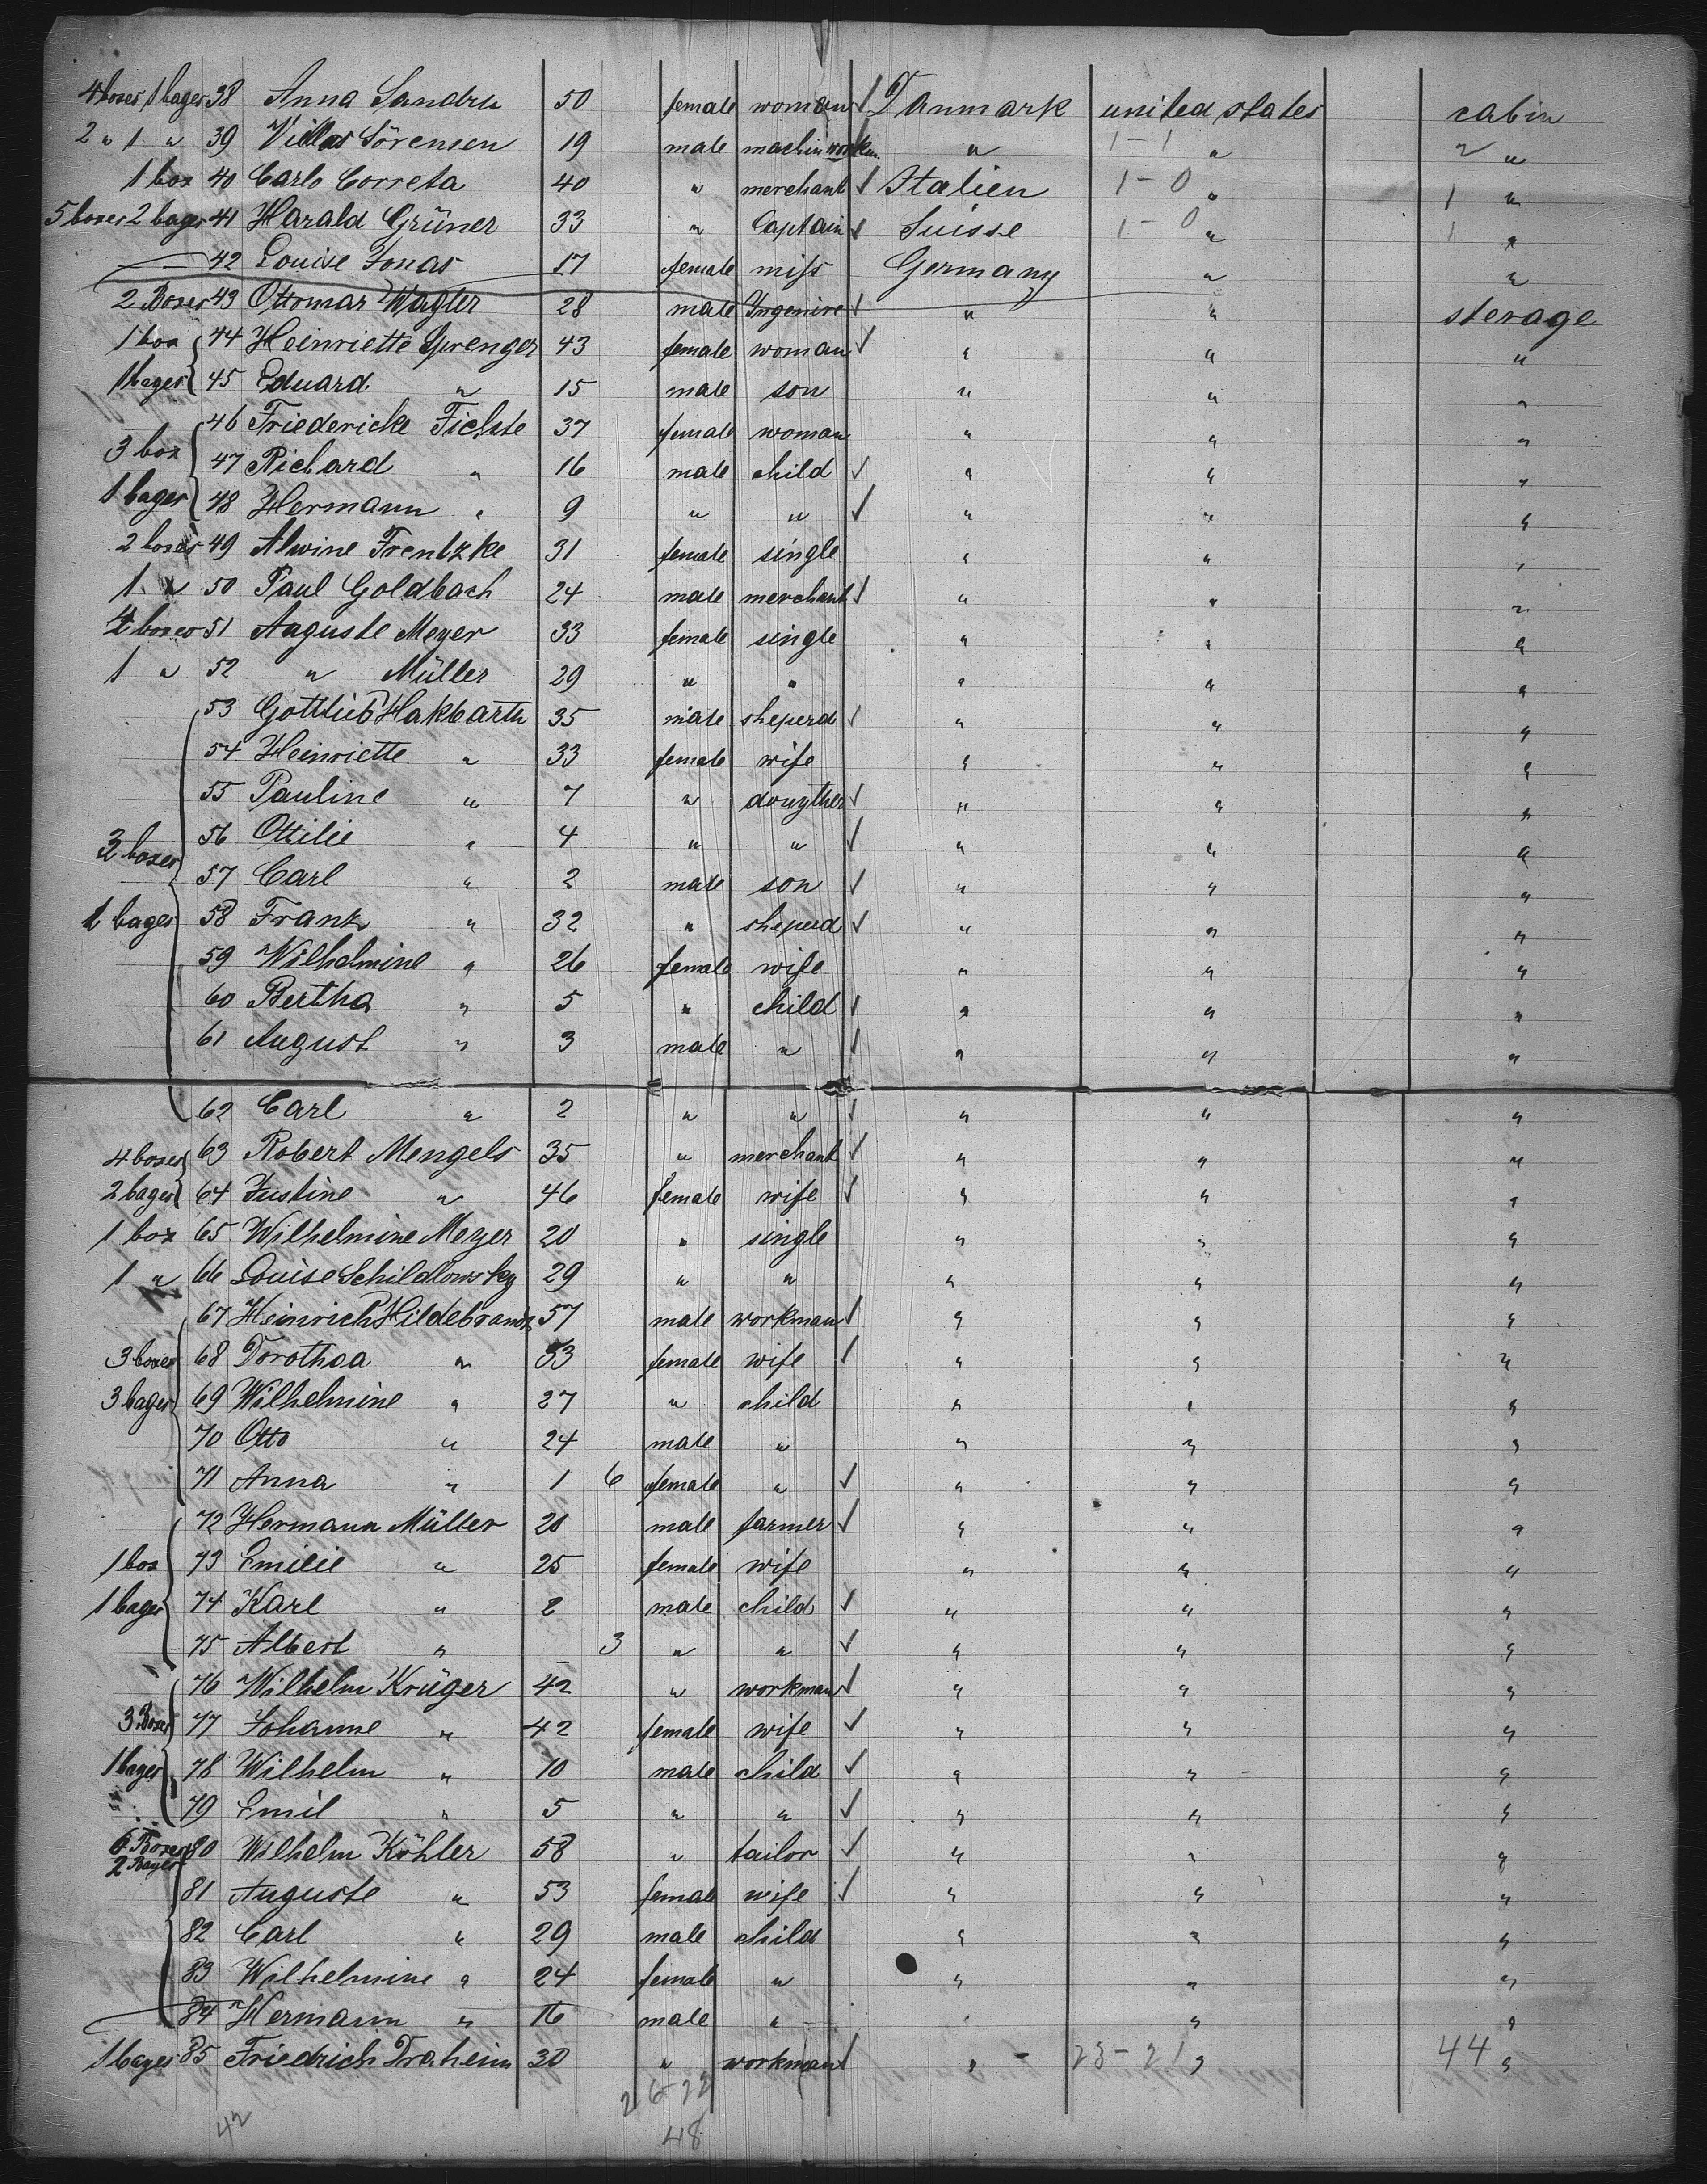 4 boxes 1 bages 38 Anna Sandru 50 female woman ✓ Danmark united states cabin
2 " 1 " 39 Sörensen 19 male machin workm. " 1-1 " 2 "
1 box 40 Carlo Correta 40 " merchant ✓ Italien 1-0 " 1 "
5 boxes 2 bages 41 Harald Grüner 33 " Captain ✓ Suisse 1-0 " 1 "
42 Louise Jonas 17 female miss Germany " "
2 Boxes 43 Ottomar Wagler 28 male Ingenire ✓ " " sterage
1 box 44 Heinriette Sprenger 43 female woman ✓ " " "
1 bages 45 Eduard " 15 male son " " "
46 Friedericke Fichte 37 female woman " " "
3 box 47 Richard " 16 male child ✓ " " "
1 bages 48 Hermann " 9 " " ✓ " " "
2 boxes 49 Alwine Frentzke 31 female single " " "
1 " 50 Paul Goldbach 24 male merchant ✓ " " "
2 boxes 51 Auguste Meyer 33 female single " " "
1 " 52 " Müller 29 " " " " "
53 Gottlieb Hakbarth 35 male sheperd ✓ " " "
54 Heinriette " 33 female wife " " "
55 Pauline " 7 " douyther ✓ " " "
3 boxes 56 Ottilie " 4 " " ✓ " " "
57 Carl " 2 male son ✓ " " "
1 bages 58 Frank " 32 " sheperd ✓ " " "
59 Wilhelmine " 26 female wife " " "
60 Bertha " 5 " child ✓ " " "
61 August " 3 male " ✓ " " "
62 Carl " 2 " " ✓ " " "
4 boxes 63 Robert Mengels 35 " merchant ✓ " " "
2 bages 64 Justine " 46 female wife ✓ " " "
1 box 65 Wilhelmine Meyer 20 " single " " "
1 " 66 Louise Schildlowsky 29 " " " " "
67 Heinrich Hildebrandt 57 male workman ✓ " " "
3 boxes 68 Dorothea " 53 female wife ✓ " " "
3 bages 69 Wilhelmine " 27 " child " " "
70 Otto " 24 male " " " "
71 Anna " 1 6 female " ✓ " " "
72 Hermann Müller male farmer ✓ " " "
1 box 73 Emilie " 25 female wife " " "
1 bages 74 Karl " 2 male child ✓ " " "
75 Albert " 3 " " ✓ " " "
76 Wilhelm Krüger 42 " workman ✓ " " "
3 Boxes 77 Johanne " 42 female wife ✓ " " "
1 bages 78 Wilhelm " 10 male child ✓ " " "
79 Emil " 5 " " ✓ " " "
6 Boxes 80 Wilhelm Köhler 58 " tailor ✓ " " "
2 Bages
81 Auguste " 53 female wife ✓ " " "
82 Carl " 29 male child " " "
83 Wilhelmine " 24 female " " " "
84 Hermann " 16 male " " " "
1 bages 85 Friedrich Draheim 30 " workman ✓ " - 23-21 " 44 "
26-22
42 48